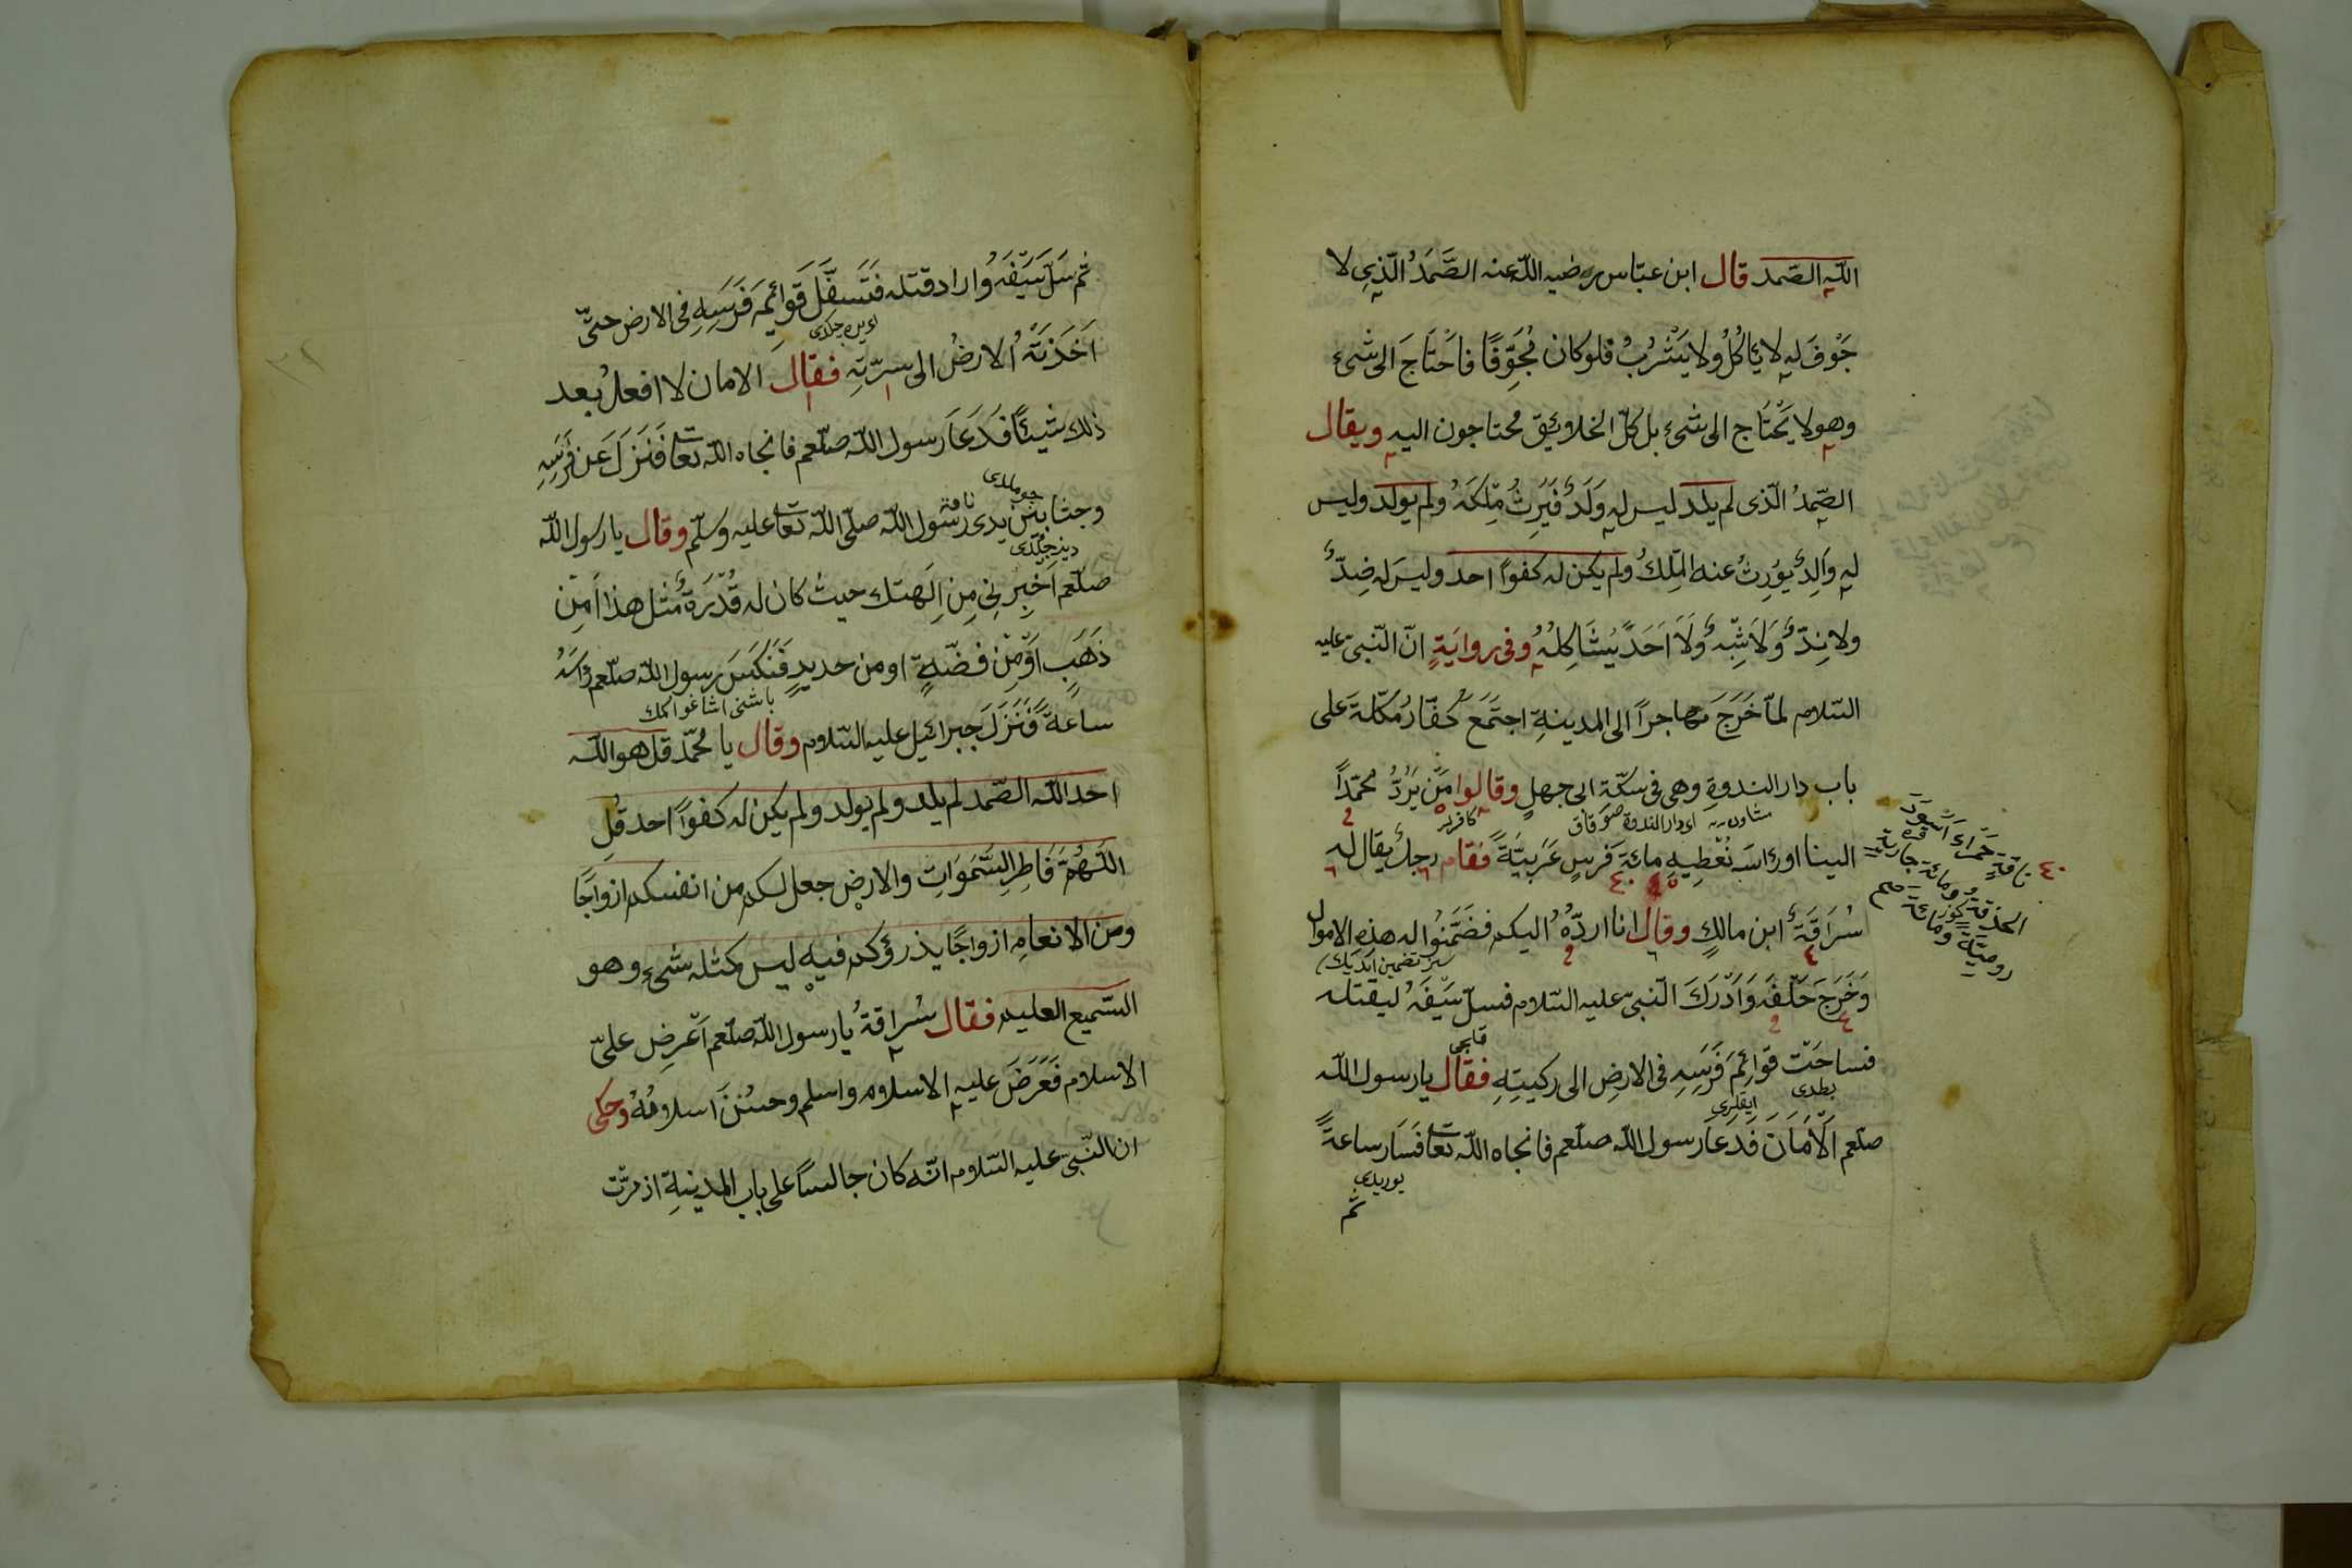 الله الصّمد قال ابن عبّاس رضيه الله عنه الصَّمَدُ الَّذِي لا
جَوْفَ لهِ لا ئَاكُلُ ولا يَشْرُبُ فلو كان مُجَوِّفًا فاحْتَاجَ الى شئ
وهو لا يَحْتَاج الى شئ بل كلّ الخلائيق محتاجون اليه ويقال
الصّمدُ الّذى لم يلد ليس له وَلَدٌ فَيَرِثُ مِلْكَهُ ولم يولد وليس
له وَالِدٌ يوُرِثُ عنه المِلْكُ ولم يكن له كفوًا احد وليسَ له ضِدٌّ
ولا نِدٌّ وَلَا شِبْهٌ وَلَا اَحَدٌ يُشَاكِلُهُ وفى روايَةٍ انّ النّبىّ عليه
السّلام لمّا خَرَجَ مهاجرًا الى المدينةِ اجتَمَعَ كُفّارُ مكّلة على
باب دار الندوةِ وهى فى سكّة ابى جهلٍ وقالوا مَنْ يَرُدُّ محمّدًا
كافرلر
الينا اورٔاسَه نُعْطِيهِ مائةَ فَرسٍ عَرَبيَّةً فقام رجلٌ يقال له
سُرَاقَةُ ابن مالكٍ وقال انا اردّهُ اليكم فضَمَّنُوا له هذهِ الاموال
وَخَرَجَ خَلْفَه وَاَدْرَكَ النّبىّ عليه السّلام فسلّ سَيْفَهُ ليقتله
فساحَتْ قوائِمَ فَرَسِهِ فى الارضِ الى ركبيتِهِ فقال يا رسول الله
بطدى
صلّعم اَلْاَمَانَ فَدَعَا رسول الله صلّعم فانجاه الله تعا فَسَار ساعةً
يوريدى
ثم
٤٠ ناقةٍ حَمْرَاءَ اَسْوَدَ
الحذقةِ ومائة جاريةٍ
روميّةٍ
ثم سَلَّ سَيْفَهُ واراد قتله فَتَسَفَّلَ قَوَائِمَ فَرَسِهِ فى الارض حتّى
اَخَذَتْهُ الارضُ الى سرّتِهِ فقال الامان لا افعلُ بعد
ذلك شيئًا فَدَعَا رسول الله صلّعم فانجاه الله تعا فَنَزَلَ عن فَرَسِهِ
وجثا بين يدى رسول الله صلّى الله تعا عليه وسلّم وقال يا رسول الله
صلّعم اَخبِرْنِى مِن اِلَهتك حيث كان له قُدْرَةٌ مثل هذا اَمِنْ
ذَهَبٍ اَوْمِنْ فضّهٍ او من حديدٍ فَنَكَسَ رسول الله صلّعم رٔاسَهُ
ساعةً فَنَزَلَ جبرائيل عليه السّلام وقال يا محمّد قل هو الله
احد الله الصّمد لم يلد ولم يولد ولم يكن له كفوًا احد قل
اللّهُمَّ فَاطِرِ السَّمَوَاتِ والارض جعل لكم من انفسكم ازواجًا
ومن الانعامِ ازواجًا يذرؤكم فيه ليس كمثله شئ وهو
السّميع العليم فقال سُراقة يا رسول الله صلّعم اَعْرِض علىّ
الاسلام فَعَرَضَ عليه الاسلام واسلم وحسُنَ اسلامُهُ وحكى
ان النّبىّ عليه السّلام انّه كان جالسًا على باب المدينةِ اذ مرّت